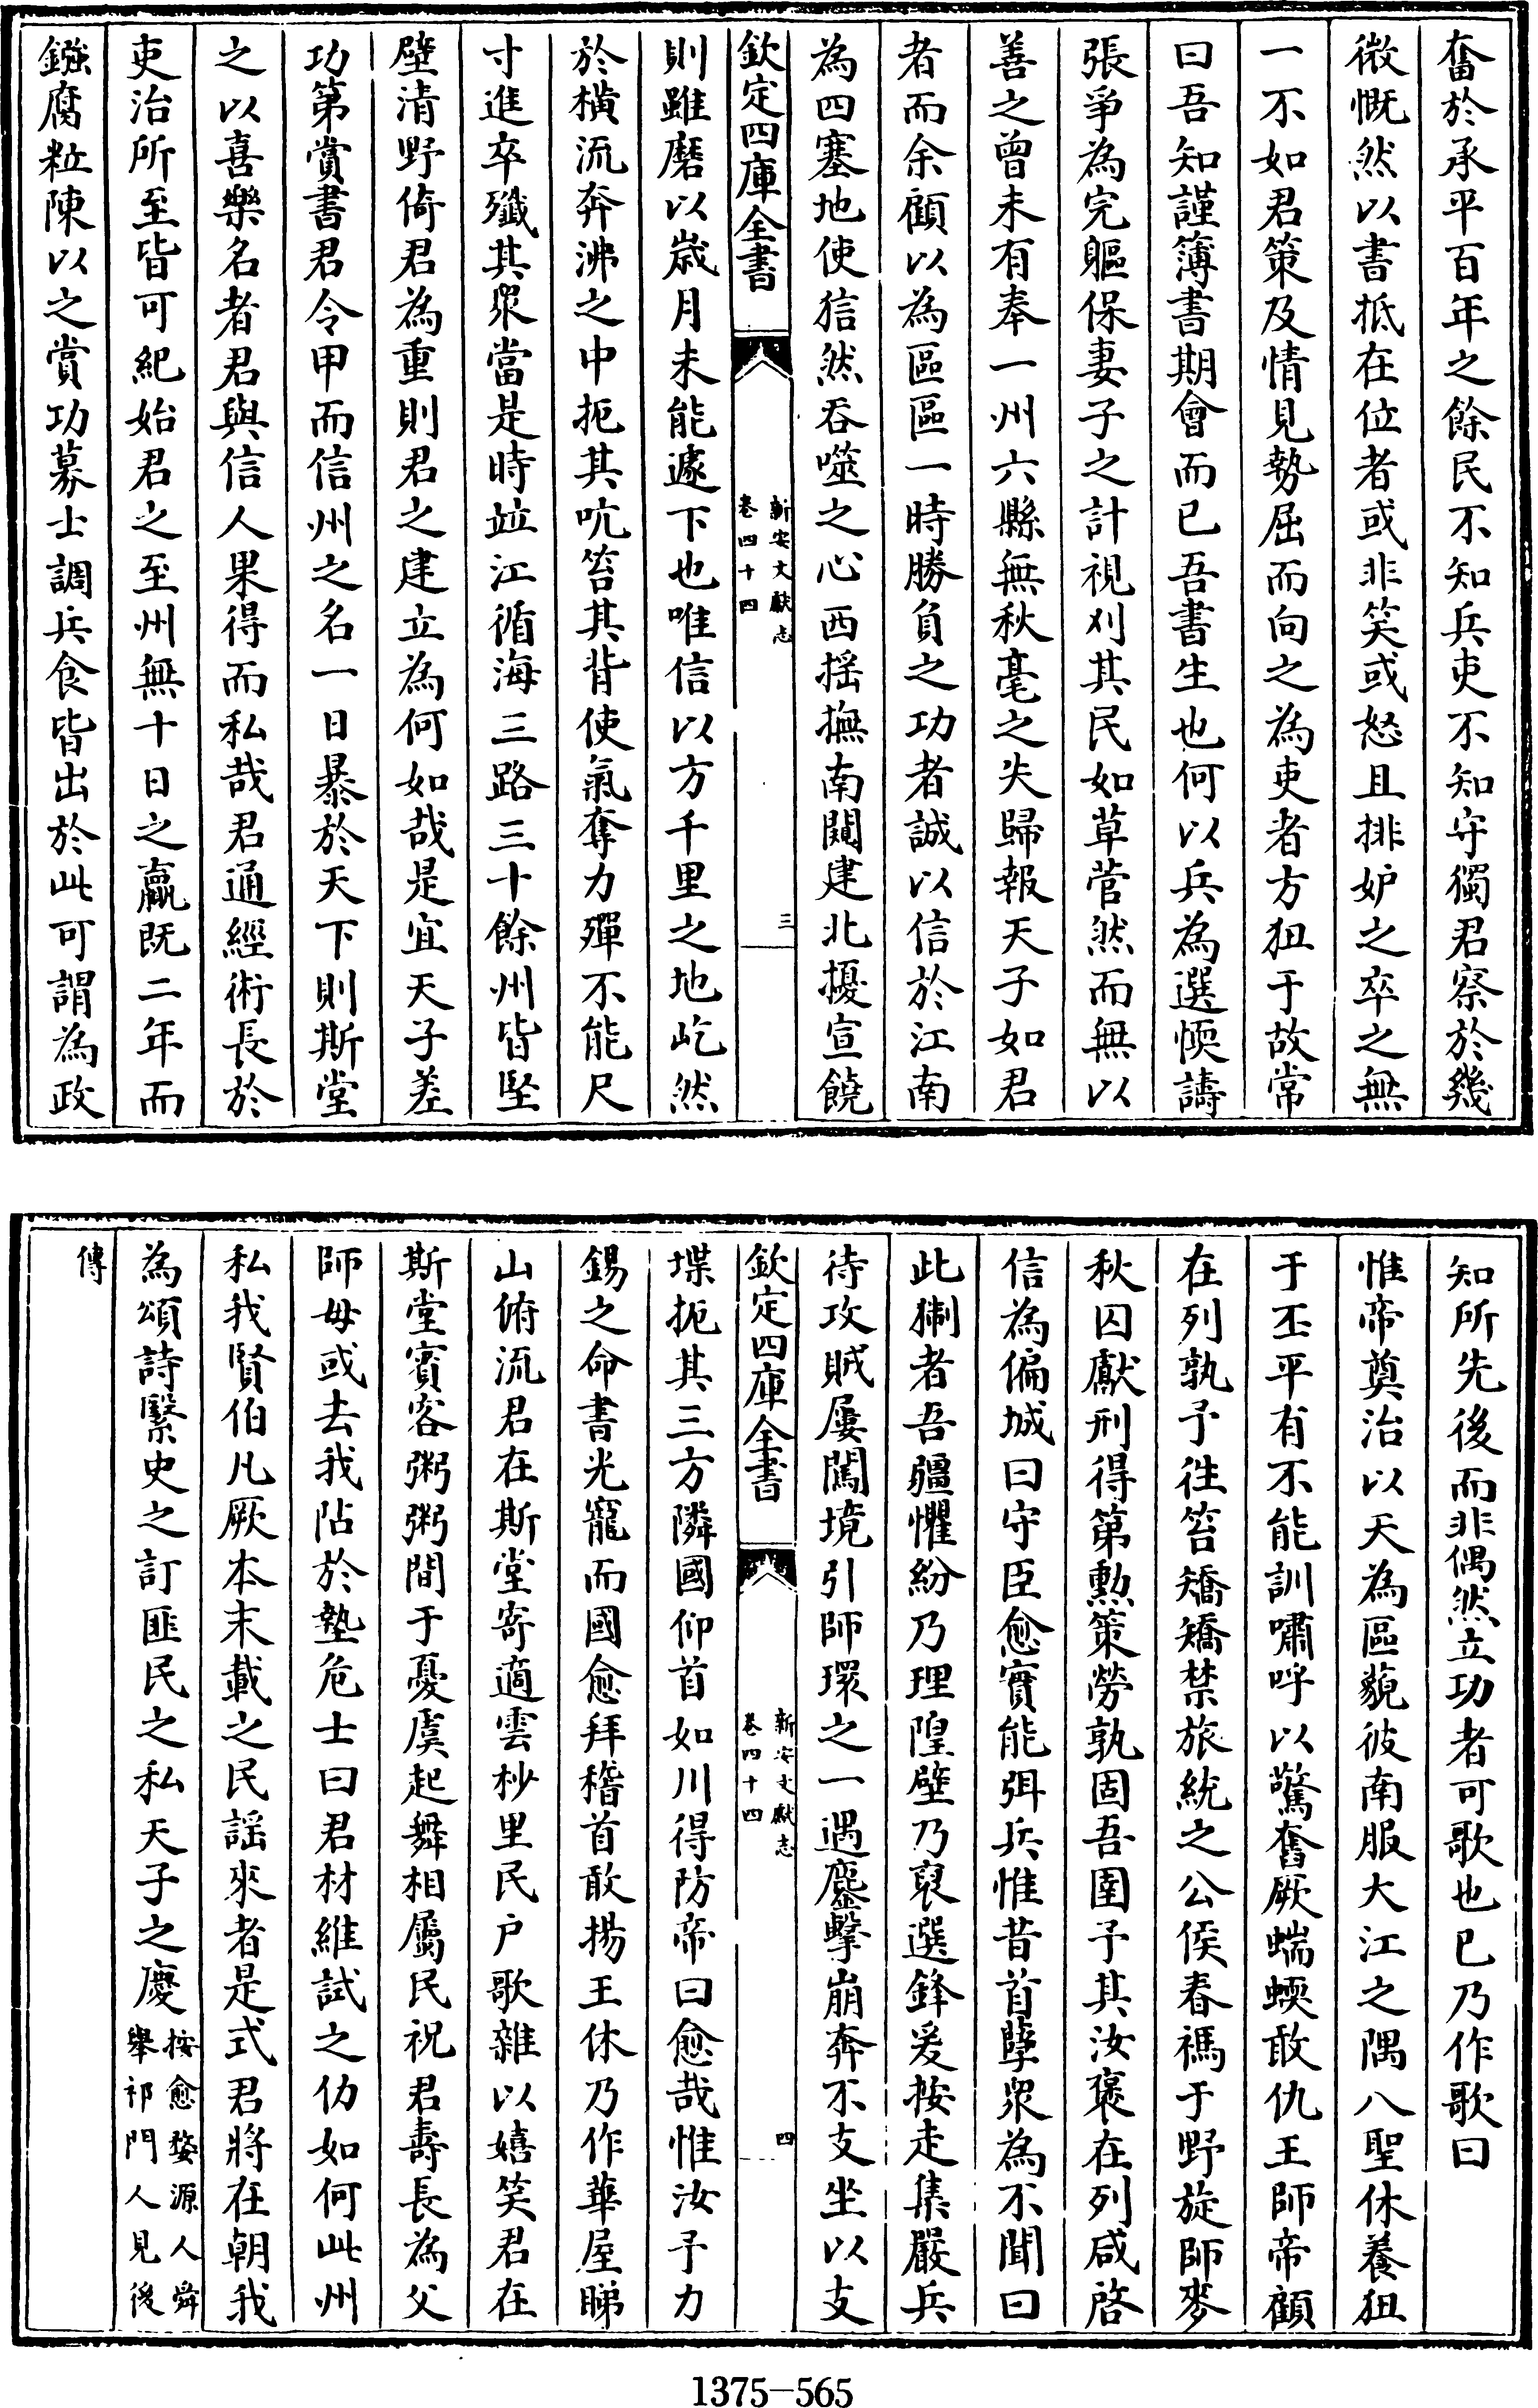 奮於承平百年之餘民不知兵吏不知守獨君察於幾
微慨然以書抵在位者或非笑或怒且排妒之卒之無
一不如君策及情見勢屈而向之為吏者方狃于故常
曰吾知謹簿書期會而已吾書生也何以兵為選愞譸
張爭為完軀保妻子之計視刈其民如草菅然而無以
善之曾未有奉一州六縣無秋毫之失歸報天子如君
者而余顧以為區區一時勝負之功者誠以信於江南
為四塞地使信然吞噬之心西揺撫南闚建北擾宣饒
欽定四庫全書
新安文獻志
卷四十四
三
則雖磨以歲月未能遽下也唯信以方千里之地屹然
於横流奔沸之中扼其吭笞其背使氣奪力殫不能尺
寸進卒殲其衆當是時竝江循海三路三十餘州皆堅
壁清野倚君為重則君之建立為何如哉是宜天子差
功第賞書君令甲而信州之名一日暴於天下則斯堂
之以喜樂名者君與信人果得而私哉君通經術長於
吏治所至皆可紀始君之至州無十日之贏既二年而
鏹腐粒陳以之賞功募士調兵食皆出於此可謂為政
知所先後而非偶然立功者可歌也已乃作歌曰
惟帝奠治以天為區藐彼南服大江之隅八聖休養狃
于丕平有不能訓嘯呼以驚奮厥蝡蝡敢仇王師帝顧
在列孰予徃笞矯矯禁旅統之公侯春禡于野旋師麥
秋囚獻刑得第勲策勞孰固吾圉予其汝褒在列咸啓
信為偏城曰守臣愈實能弭兵惟昔首孽衆為不聞曰
此猘者吾疆懼紛乃理隍壁乃裒選鋒爰按走集嚴兵
待攻賊屢闖境引師環之一遇鏖擊崩奔不支坐以支
欽定四庫全書
新安文獻志
卷四十四
四
堞扼其三方隣國仰首如川得防帝曰愈哉惟汝予力
錫之命書光寵而國愈拜稽首敢揚王休乃作華屋睇
山俯流君在斯堂寄適雲杪里民户歌雜以嬉笑君在
斯堂賓客粥粥間于憂虞起舞相屬民祝君壽長為父
師毋或去我阽於墊危士曰君材維試之仂如何此州
私我賢伯凡厥本末載之民謡來者是式君將在朝我
為頌詩繄史之訂匪民之私天子之慶
按愈婺源人舜
舉祁門人見後
傳
1375-565